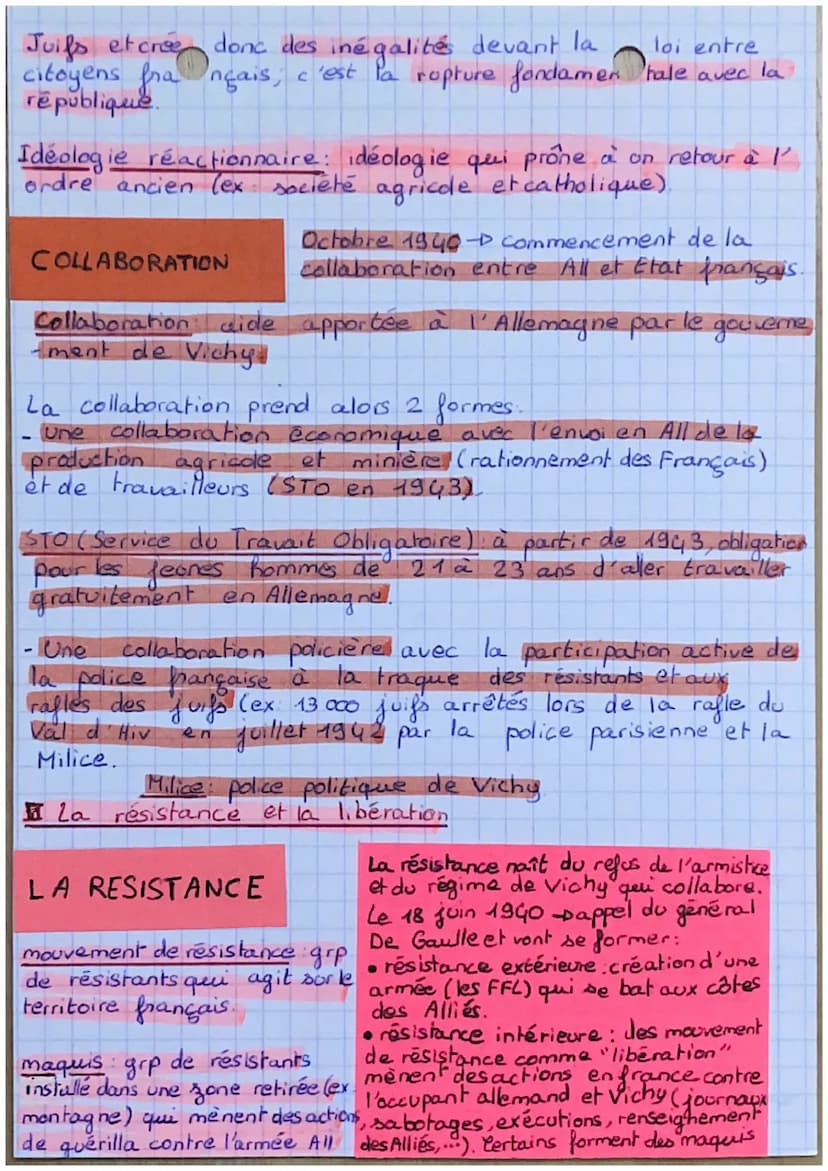 Juifs et crée donc des inégalités devant la loi entre
citoyens français, c'est la rupture fondamentale avec la
république.
Idéologie réactionnaire : idéologie qui prône à on retour à l'
ordre ancien (ex : société agricole et catholique).
COLLABORATION
Octobre 1940 → commencement de la
collaboration entre All et Etat français.
Collaboration : aide apportée à l'Allemagne par le gouverne
-ment de Vichy.
La collaboration prend alors 2 formes :
- une collaboration économique avec l'envoi en All de la
production agricole et minière (rationnement des Français)
et de travailleurs (STO en 1943)
STO (Service du Travail Obligatoire) : à partir de 1943, obligation
pour les jeunes hommes de 21 à 23 ans d'aller travailler
gratuitement en Allemagne.
- Une collaboration policière avec la participation active de
la police française à la traque des résistants et aux
rafles des juifs (ex : 13 000 juifs arrêtés lors de la rafle du
Val d'Hiv en juillet 1942 par la police parisienne et la
Milice.
Milice : police politique de Vichy
La résistance et la libération
LA RESISTANCE
mouvement de résistance : grp
de résistants qui agit sur le
territoire français.
maquis : grp de résistants
installé dans une zone retirée (ex :
montagne) qui mènent des actions
de guérilla contre l'armée All
La résistance naît du refus de l'armistice
et du régime de Vichy qui collabore.
Le 18 juin 1940 → appel du général
De Gaulle et vont se former :
• résistance extérieure : création d'une
armée (les FFL) qui se bat aux côtés
des Alliés.
• résistance intérieure : des mouvement
de résistance comme "libération"
mènent des actions en france contre
l'occupant allemand et Vichy (journaux
, sabotages, exécutions, renseignement
des Alliés, ...). Certains forment des maquis